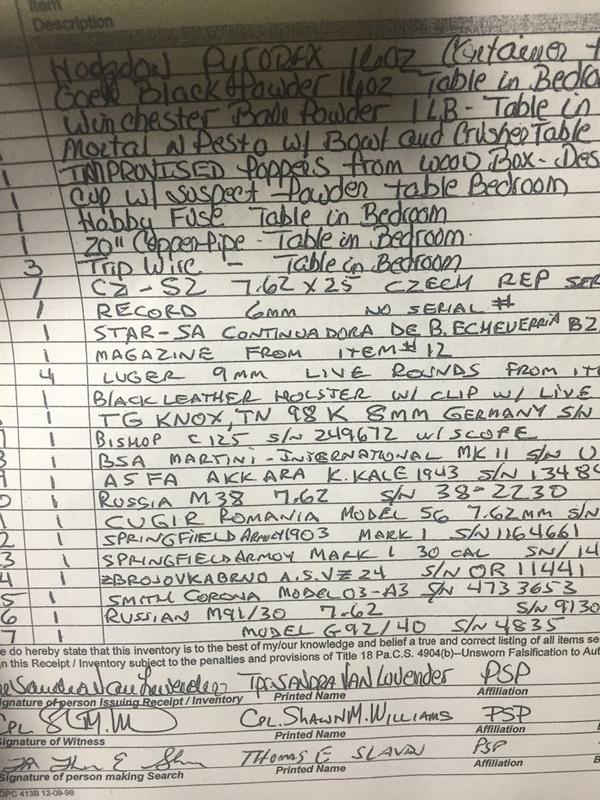 Item
Description
Hodgdon Pyrodex 16oz Container
Goex Black Powder 16oz Table in Bedroo
Winchester Ball Powder 1LB - Table in
Mortal N Pesto w/ Bowl and Crusher Table
1 IMPROVISED Poppers from WOOD Box - Des
1 Cup w/ suspect Powder table Bedroom
1 Hobby Fuse Table in Bedroom
1 20" Copper Pipe - Table in Bedroom.
3 Trip Wire - Table in Bedroom
1 CZ-52 7.62 X 25 CZECH REP SER
1 RECORD 6mm NO SERIAL #
1 STAR-SA CONTINUADORA DE B. ECHEVERRIA BZ
1 MAGAZINE FROM ITEM #12
4 LUGER 9MM LIVE ROUNDS FROM IT
1 BLACK LEATHER HOLSTER W/ CLIP W/ LIVE
1 TG KNOX, TN 98 K 8MM GERMANY S/N
1 BISHOP C125 S/N 249672 W/ SCOPE
1 BSA MARTINI-INTERNATIONAL MK II S/N U
1 ASFA AKKARA K.KALE 1943 S/N 13484
1 RUSSIA M38 7.62 S/N 38-2230
1 1 CUGIR ROMANIA MODEL 56 7.62MM S/N
2 1 SPRINGFIELD ARMORY 1903 MARK I S/N 1164661
3 1 SPRINGFIELD ARMOY MARK I 30 CAL SN/ 14
4 1 ZBROJOVKA BRNO A.S. VZ 24 S/N OR 11441
5 1 SMITH CORONA MODEL 03-A3 S/N 4733653
6 1 RUSSIAN M91/30 7.62 S/N 9130
7 1 MODEL G92/40 S/N 4835
e do hereby state that this inventory is to the best of my/our knowledge and belief a true and correct listing of all items se
n this Receipt / Inventory subject to the penalties and provisions of Title 18 Pa.C.S. 4904(b)--Unsworn Falsification to Aut
TPR. SANDRA VAN Luvender PSP
ignature of person Issuing Receipt / Inventory Printed Name Affiliation
CPL. SHAWN M. WILLIAMS PSP
Signature of Witness Printed Name Affiliation
THOMAS E SLAVIN PSP
Signature of person making Search Printed Name Affiliation
OPC 413B 12-09-98